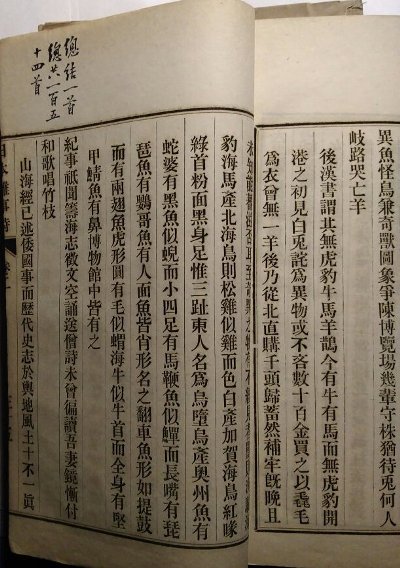 異魚怪鳥兼奇獸圖象爭陳博覽場幾輩守株猶待兎何人
岐路哭亡羊
後漢書謂其無虎豹牛馬羊鵲今有牛有馬而無虎豹開
港之初見白兎詫爲異物或不吝數十百金買之以毳毛
爲衣曾無一羊後乃從北直購千頭歸蓄然補牢旣晚且
豹海馬產北海鳥則松雞似雞而色白產加賀海鳥紅喙
綠首粉面黑身足惟三趾東人名爲烏墮烏產奧州魚有
蛇婆有黑魚似蜺而小四足有馬鞭魚似鱓而長嘴有琵
琶魚有鸚哥魚有人面魚皆肖形名之翻車魚形如提鼓
而有兩翅魚虎形圓有毛似蝟海牛似牛首而全身有堅
甲鯖魚有鼻博物館中皆有之
紀事祗聞籌海志徵文空誦送僧詩未曾徧讀吾妻鏡慚付
和歌唱竹枝
山海經已述倭國事而歷代史志於輿地風土十不一眞
總結一首
總共一百五
十四首
日本雜事詩